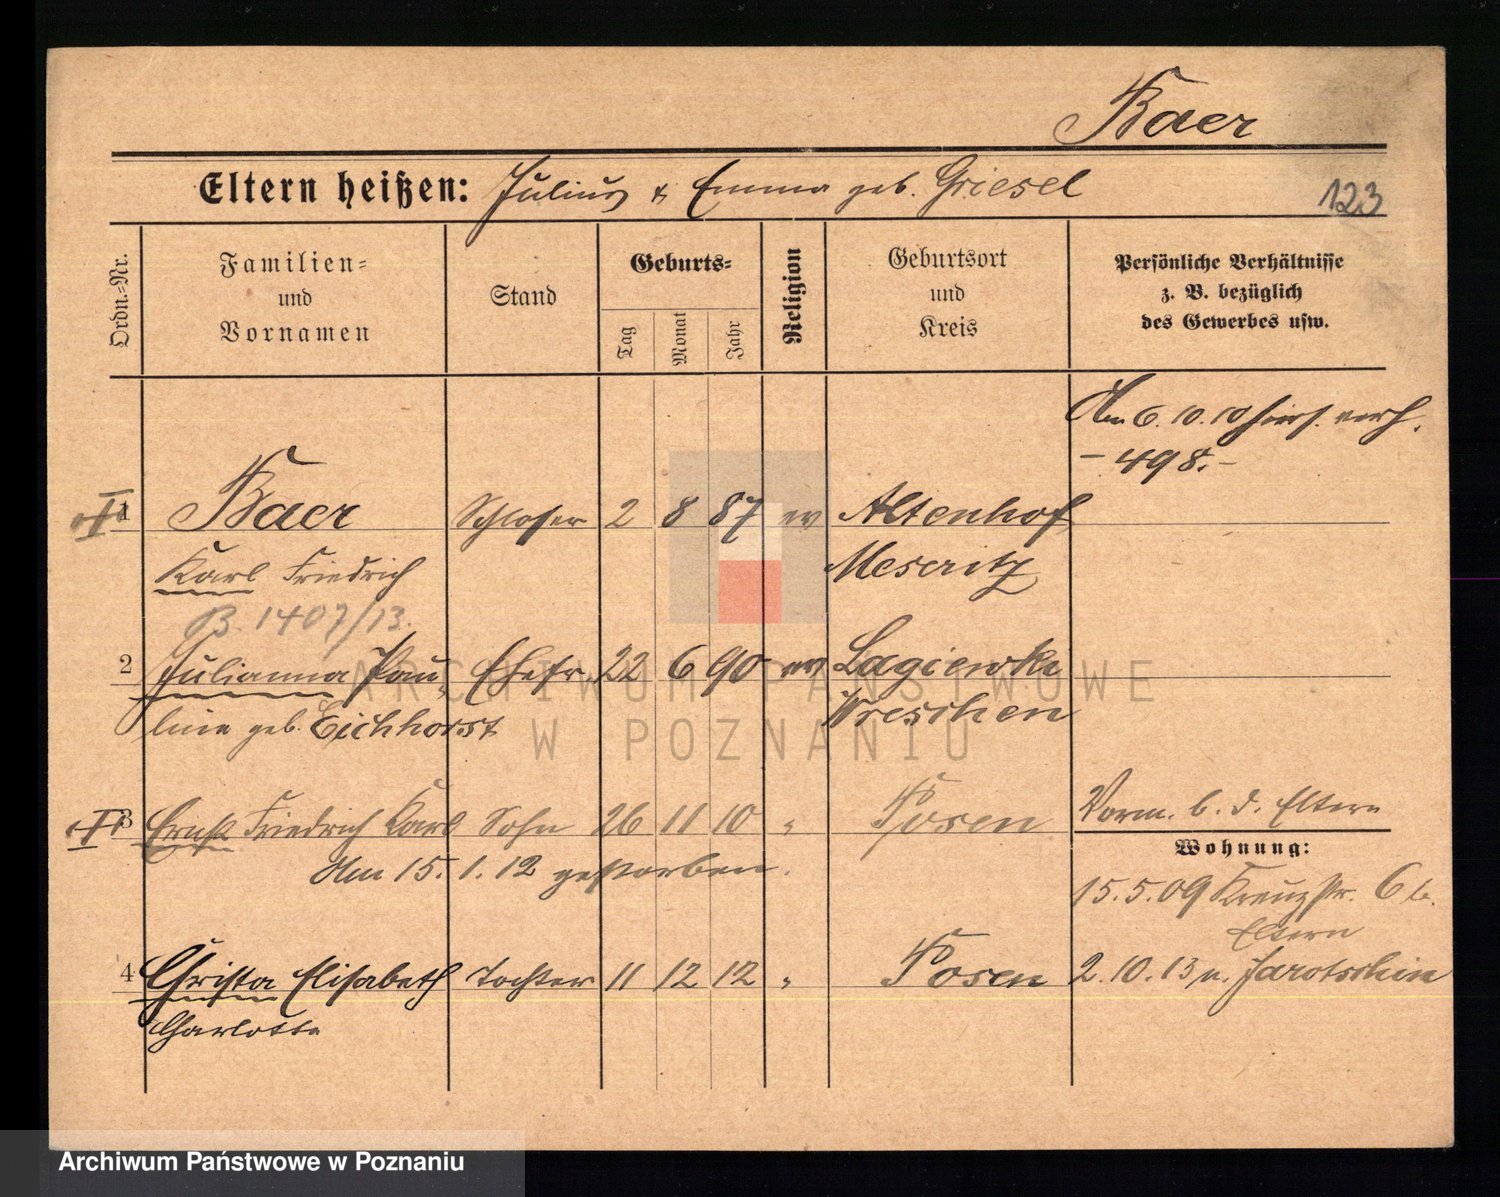 Baer
Eltern heißen: Julius & Emma geb. Griesel
123
Ordn.-Nr.
Familien-
und
Vornamen
Stand
Geburts-
Tag
Monat
Jahr
Religion
Geburtsort
und
Kreis
Persönliche Verhältnisse
z. B. bezüglich
des Gewerbes usw.
Am 6.10.10 hier verh.
– 498. –
1 Baer Schlosser 2 8 87 ev Altenhof
Karl Friedrich Meseritz
B. 1407/13.
2 Julianna Pau- Ehefr. 22 6 90 ev Lagiewki
line geb. Eichhorst Wreschen
3 Ernst Friedrich Karl Sohn 26 11 10 " Posen
Am 15.1.12 gestorben.
Vorm. b. d. Eltern
Wohnung:
15.5.09 Kreuzstr. 6 b.
Eltern
4 Christa Elisabeth Tochter 11 12 12 " Posen
Charlotte
2.10.13 n. Jarotschin
ARCHIWUM PAŃSTWOWE
W POZNANIU
Archiwum Państwowe w Poznaniu